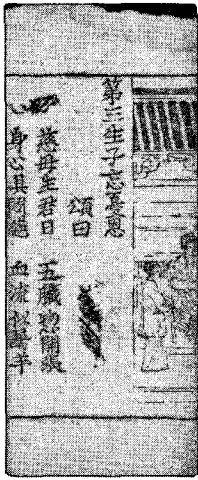 第三生子忘憂恩
頌曰
慈母生君日 五臟惣開張
身心具悶絕 血流似屠羊